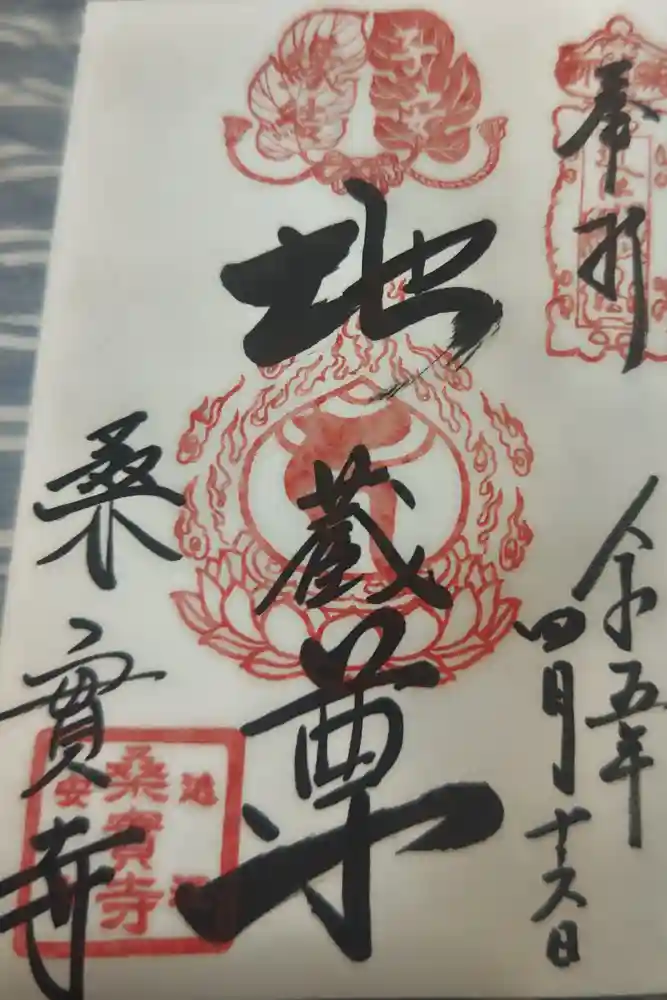 奉拝
令和五年
四月十六日
地蔵尊
桑實寺
桑實寺